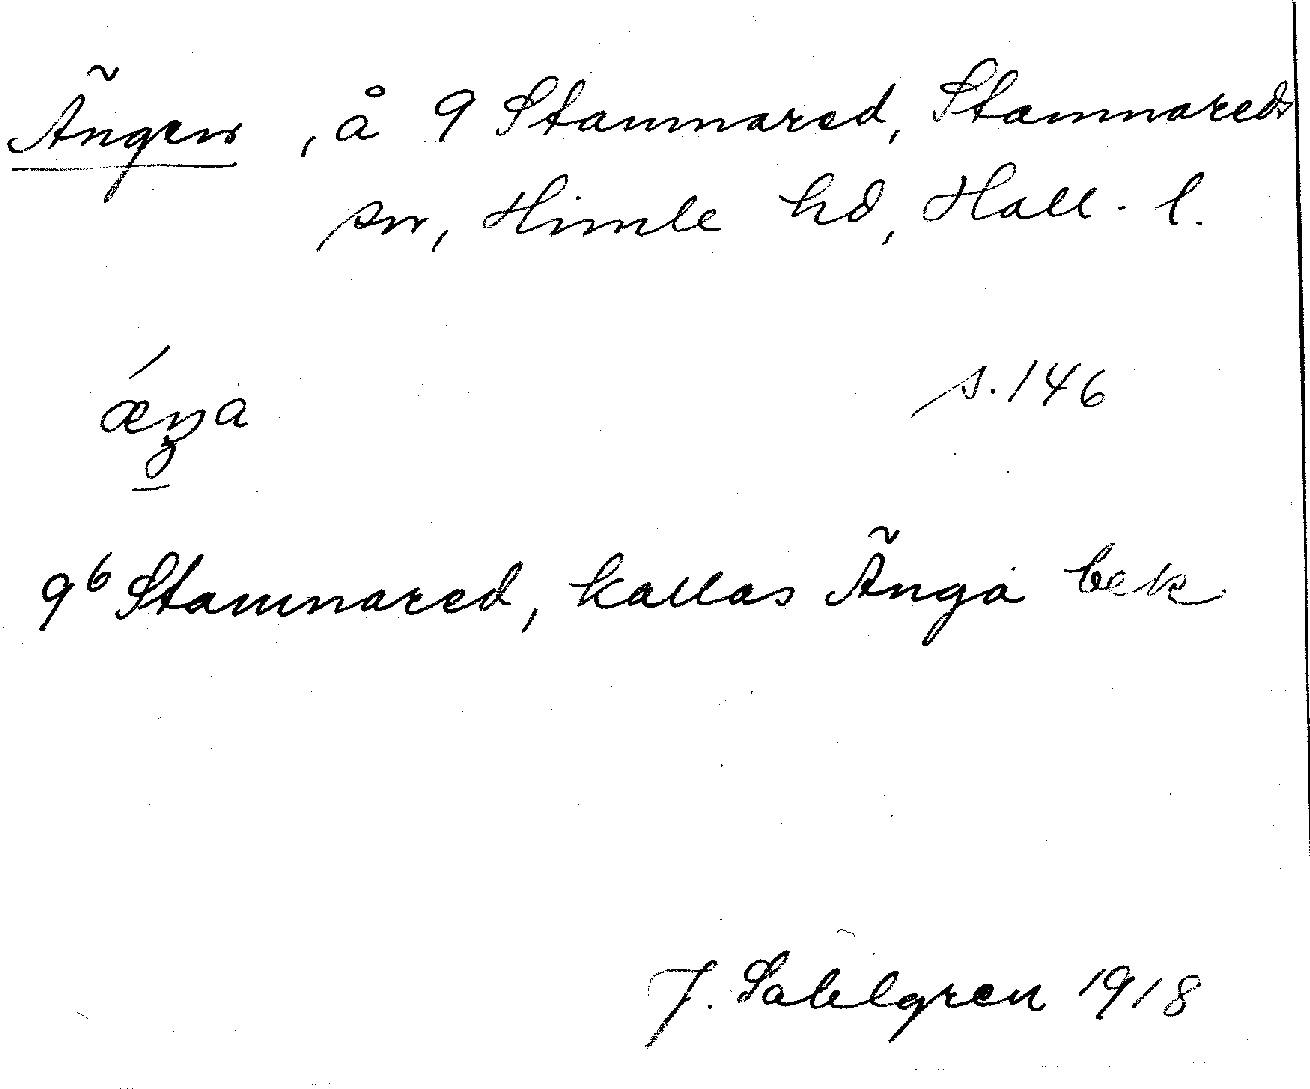 Ängen, å 9 Stamnared, Stamnareds
sn, Himle hd, Hall. l.
s. 146
9⁶ Stamnared, kallas Änga bek
J. Sahlgren 1918